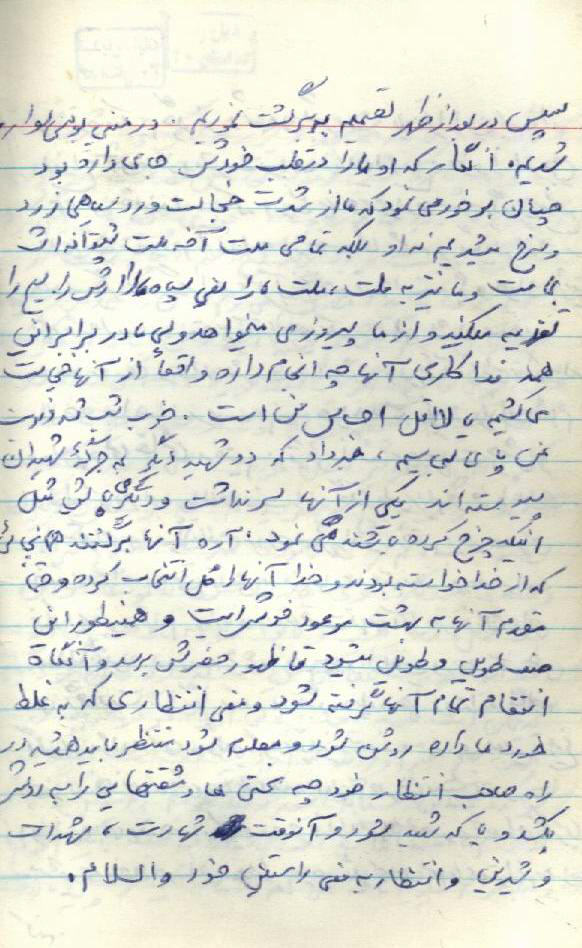 سپس در بعد از ظهر تصمیم به گشت نمودیم . در ضمن یوتی سوار
شدیم. انگار که او ما را در قلب خودش جای داده بود
چنان برخورد می نمود که ما از شدت خجالت و رو سیاهی زرد
و سرخ میشدیم نه او بلکه تمامی ملت آخه ملت
ما نیز به ملت ، ملت ما را یعنی سپاه ارتش بسیج را
تغذیه میکند و از ما پیروزی میخواهد ولی ما در برابر این
همه فداکاری آنها چه انجام داده واقعاً از آنها خجالت
می کشیم یا لااقل احساس من است . خوب شب شد و نوبت
من پاس می رسیم ، خبر داد که دو شهید دیگر به جرگه شهیدان
پیوسته اند یکی از آنها سر نداشت و دیگری پاش مثل
اینکه چرخ کرده باشند می نمود . آره آنها برگشتند همانجائی
که از خدا خواسته بودند و خدا آنها را گل انتخاب کرده و
مقدم آنها به بهشت موعود خوش است و همینطور این
صف طویل و طویل میشود تا ظهور حضرتش برسد و آنگاه
انتقام تمام آنها گرفته شود و معنی انتظاری که به غلط
خورد ما داده روشن شود و معلوم شود منتظر باید همیشه در
راه صاحب انتظار خود چه سختی ها و مشقتهایی را به دوش
بکشد و یا که شهید شود و آنوقت شهادت ، شهادت
و شیرینی و انتظار به معنی راستین خود والسلام .